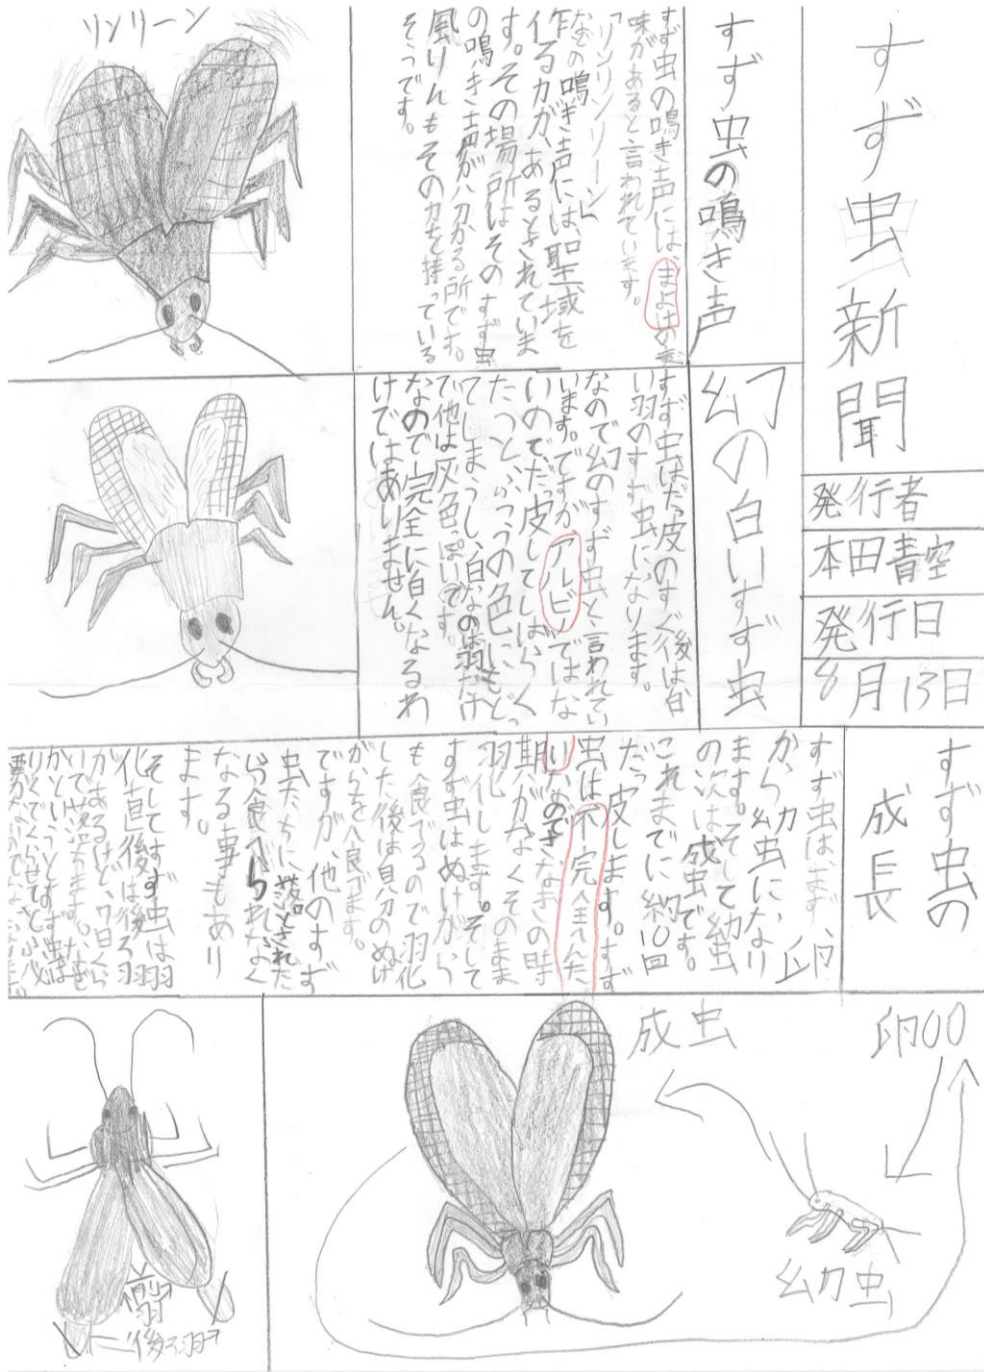 すず虫新聞
発行者
本田青空
発行日
8月13日
すず虫の鳴き声
すず虫の鳴き声には、まよけの意
味があると言われています。
「リンリンリーン」
などの鳴き声には、聖域を
作る力が、あるとされていま
す。その場所はそのすず虫
の鳴き声がハ分かる所です。
風りんもその力を持っている
そうです。
リンリーン
幻の白いすず虫
すず虫はだっ皮のすぐ後は白
い羽のすず虫になります。
なので幻のすず虫と言われてい
います。ですがアルビノではな
いのでだっ皮してしばらく
たつと、ふつうの色にもどっ
てしまうし、白なのは羽だけ
で他は灰色っぽいです。
なので完全に白くなるわ
けではありません。
すず虫の
成長
すず虫は、まず、卵
から幼虫になり
ます。そして幼虫
の次は成虫です。
これまでに約10回
だっ皮します。すず
虫は不完全へんた
いのできなぎの時
期がなくそのまま
羽化します。そして
すず虫はぬけがら
も食べるので羽化
した後は自分のぬけ
がらを食べます。
ですが、他のすず
虫たちに落とされた
ら食べられなく
なる事もあり
ます。
そしてすず虫は羽
化直後は後ろ羽
があるけど、7日くら
いで落ちます。なぜ
かというとすず虫は
成虫
卵
幼虫
前羽
後ろ羽